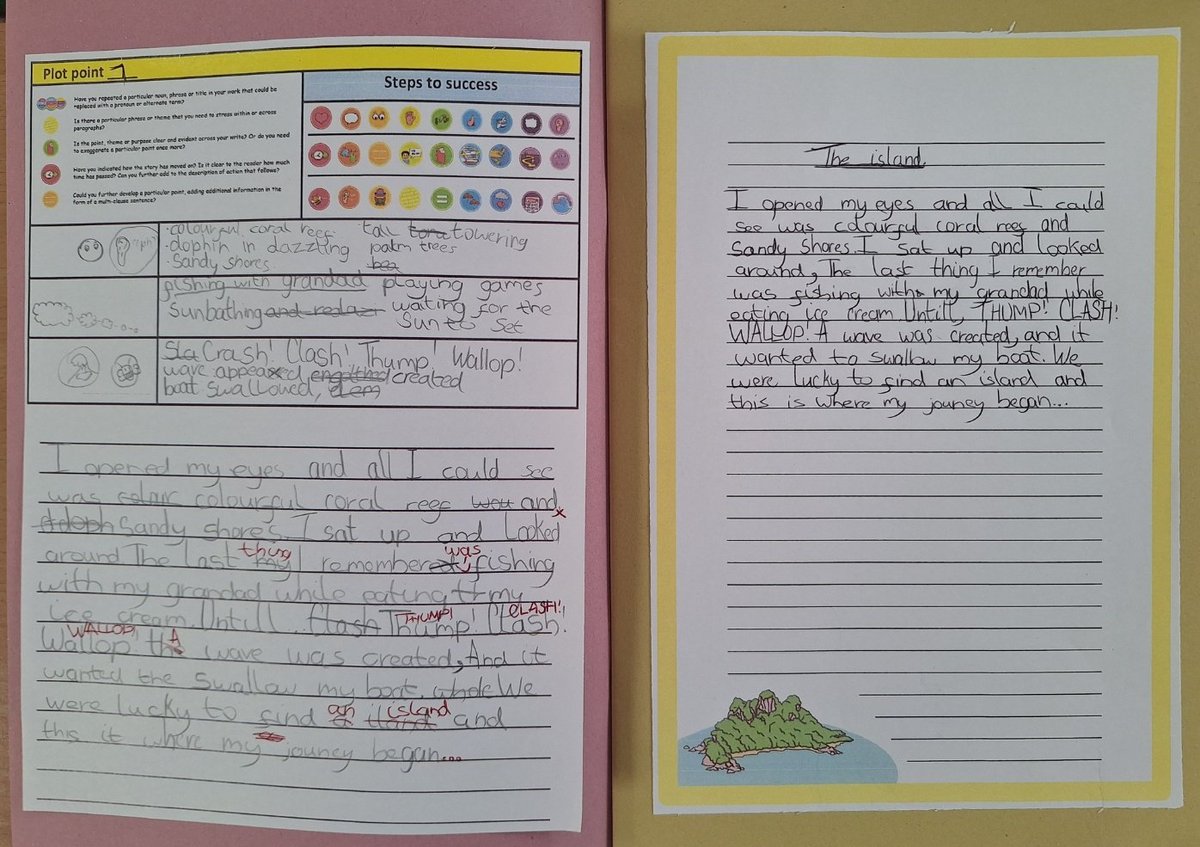 Plot point 1
Have you repeated a particular noun, phrase or title in your work that could be
replaced with a pronoun or alternate term?
Is there a particular phrase or theme that you need to stress within or across
paragraphs?
Is the point, theme or purpose clear and evident across your write? Or do you need
to exaggerate a particular point once more?
Have you indicated how the story has moved on? Is it clear to the reader how much
time has passed? Can you further add to the description of action that follows?
Could you further develop a particular point, adding additional information in the
form of a multi-clause sentence?
Steps to success
·colourful coral reef
·dolphin in dazzling
·Sandy shores
tall towering
palm trees
fishing with grandad playing games
Sunbathing and relax waiting for the
Sun to set
Crash! Clash! Thump! Wallop!
wave appeared, created
boat swallowed,
I opened my eyes and all I could see
was colourful coral reef and
Sandy shores. I sat up and looked
around The last thing I remember was fishing
with my grandad while eating my
ice cream. Untill. Clash Thump! THUMP! Clash! CLASH!
Wallop! WALLOP! A wave was created, And it
wanted the Swallow my boat. We
were lucky to find an island and
this it where my jouney began...
The island
I opened my eyes and all I could
see was colourful coral reef and
Sandy shores. I sat up and looked
around, The last thing I remember
was fishing with my grandad while
eating ice cream Untill, THUMP! CLASH!
WALLOP! A wave was created, and it
wanted to swallow my boat. We
were lucky to find an island and
this is where my jouney began...